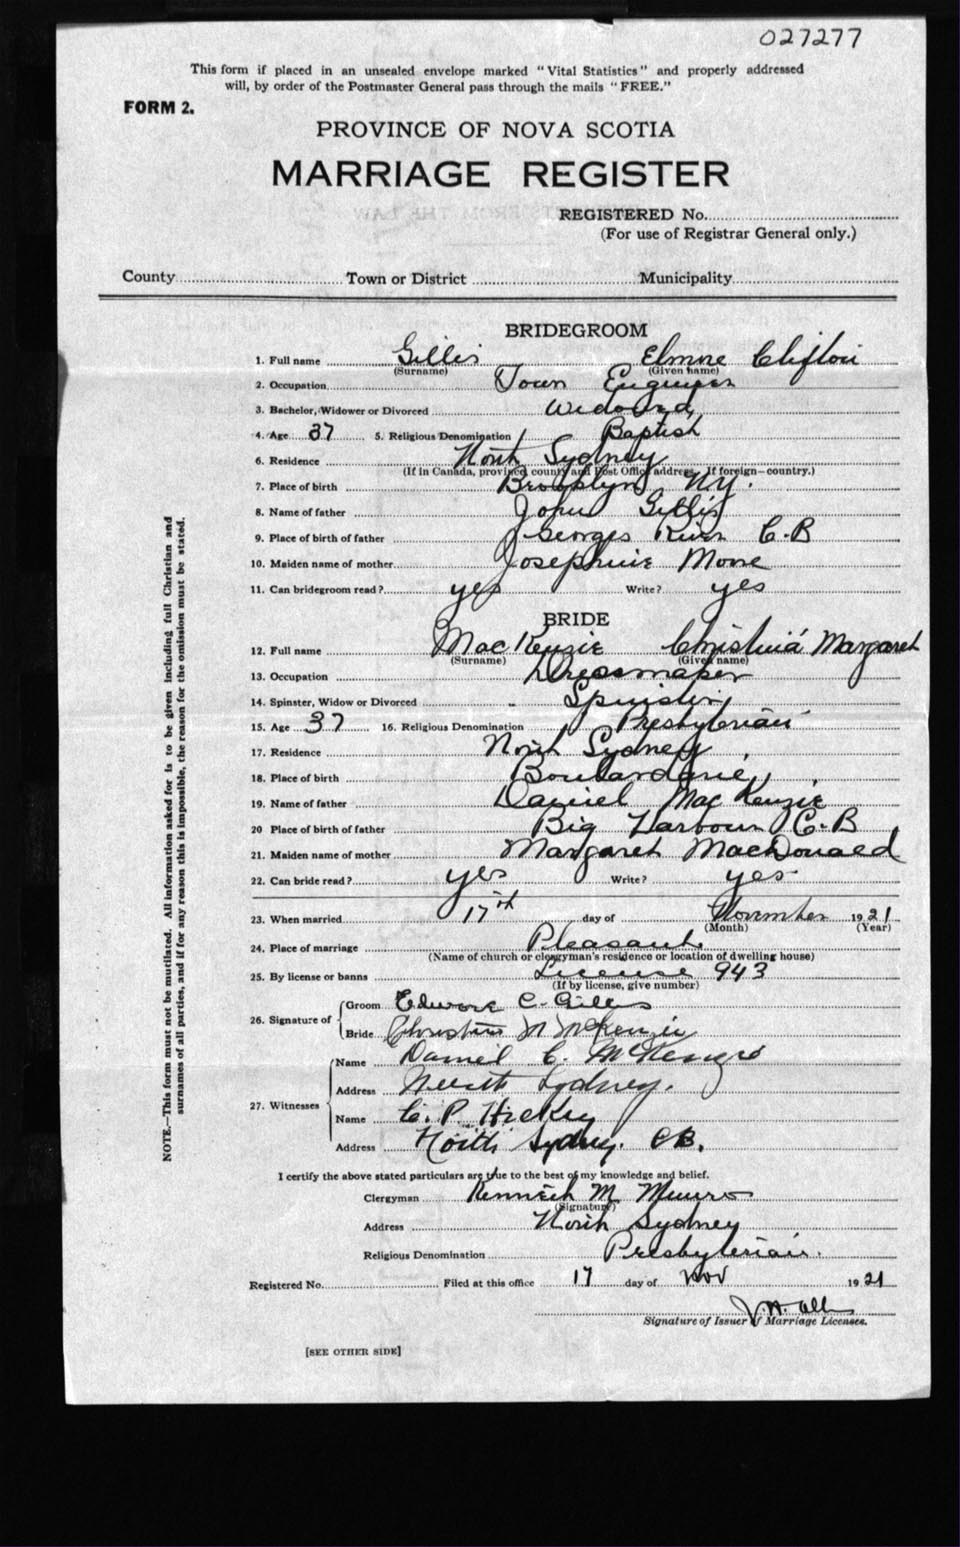 027277
This form if placed in an unsealed envelope marked "Vital Statistics" and properly addressed
will, by order of the Postmaster General pass through the mails "FREE."
FORM 2.
PROVINCE OF NOVA SCOTIA
MARRIAGE REGISTER
REGISTERED No.
(For use of Registrar General only.)
County Town or District Municipality
BRIDEGROOM
1. Full name Gillis Clifton
(Surname) (Given name)
2. Occupation Town Engineer
3. Bachelor, Widower or Divorced
4. Age 37 5. Religious Denomination Baptist
6. Residence North Sydney
(If in Canada, province, county and Post Office address. If foreign—country.)
7. Place of birth Brooklyn N.Y.
8. Name of father John Gillis
9. Place of birth of father Georges River C.B
10. Maiden name of mother Josephine
11. Can bridegroom read? yes Write? yes
BRIDE
12. Full name MacKenzie Christina Margaret
(Surname) (Given name)
13. Occupation Dressmaker
14. Spinster, Widow or Divorced Spinster
15. Age 37 16. Religious Denomination Presbyterian
17. Residence North Sydney
18. Place of birth Boulardarie
19. Name of father Daniel MacKenzie
20 Place of birth of father Big Harbour C.B
21. Maiden name of mother Margaret MacDonald
22. Can bride read? yes Write? yes
23. When married 17th day of November 1921
(Month) (Year)
24. Place of marriage Pleasant
(Name of church or clergyman's residence or location of dwelling house)
25. By license or banns License 943
(If by license, give number)
26. Signature of Groom C. Gillis
Bride Christina M McKenzie
27. Witnesses Name Daniel C. McKenzie
Address North Sydney.
Name C. P. Hickey
Address North Sydney. C.B.
I certify the above stated particulars are true to the best of my knowledge and belief.
Clergyman Kenneth M Munro
(Signature)
Address North Sydney
Religious Denomination Presbyterian.
Registered No. Filed at this office 17 day of Nov 1921
J. H.
Signature of Issuer of Marriage Licenses.
[SEE OTHER SIDE]
NOTE.—This form must not be mutilated. All information asked for is to be given including full Christian and
surnames of all parties, and if for any reason this is impossible, the reason for the omission must be stated.